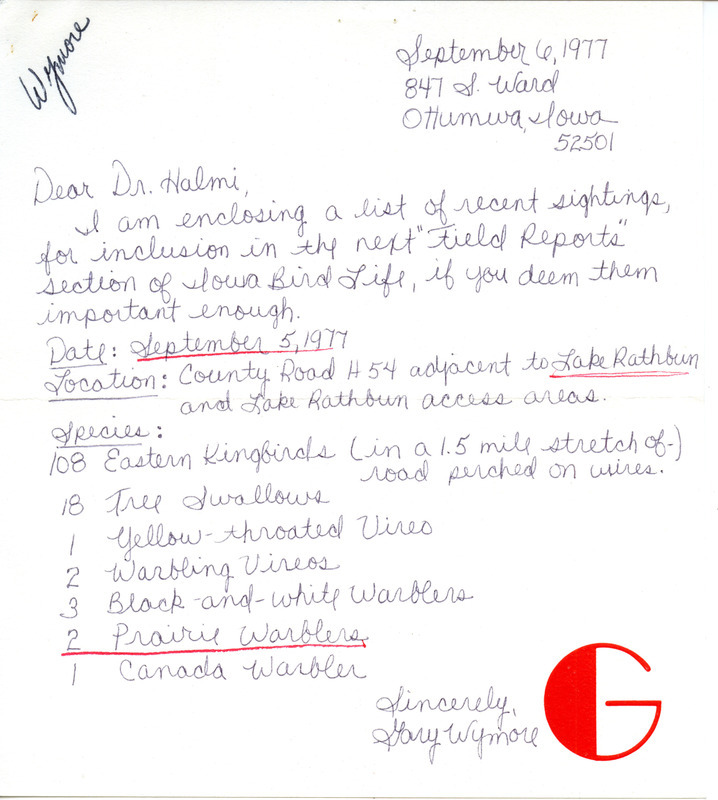 Wymore
September 6, 1977
847 S. Ward
Ottumwa, Iowa
52501
Dear Dr. Halmi,
I am enclosing a list of recent sightings,
for inclusion in the next "Field Reports"
section of Iowa Bird Life, if you deem them
important enough.
Date: September 5, 1977
Location: County Road H 54 adjacent to Lake Rathbun
and Lake Rathbun access areas.
Species:
108 Eastern Kingbirds (in a 1.5 mile stretch of-)
road perched on wires.
18 Tree Swallows
1 Yellow-throated Vireo
2 Warbling Vireos
3 Black-and-white Warblers
2 Prairie Warblers
1 Canada Warbler
Sincerely,
Gary Wymore
G